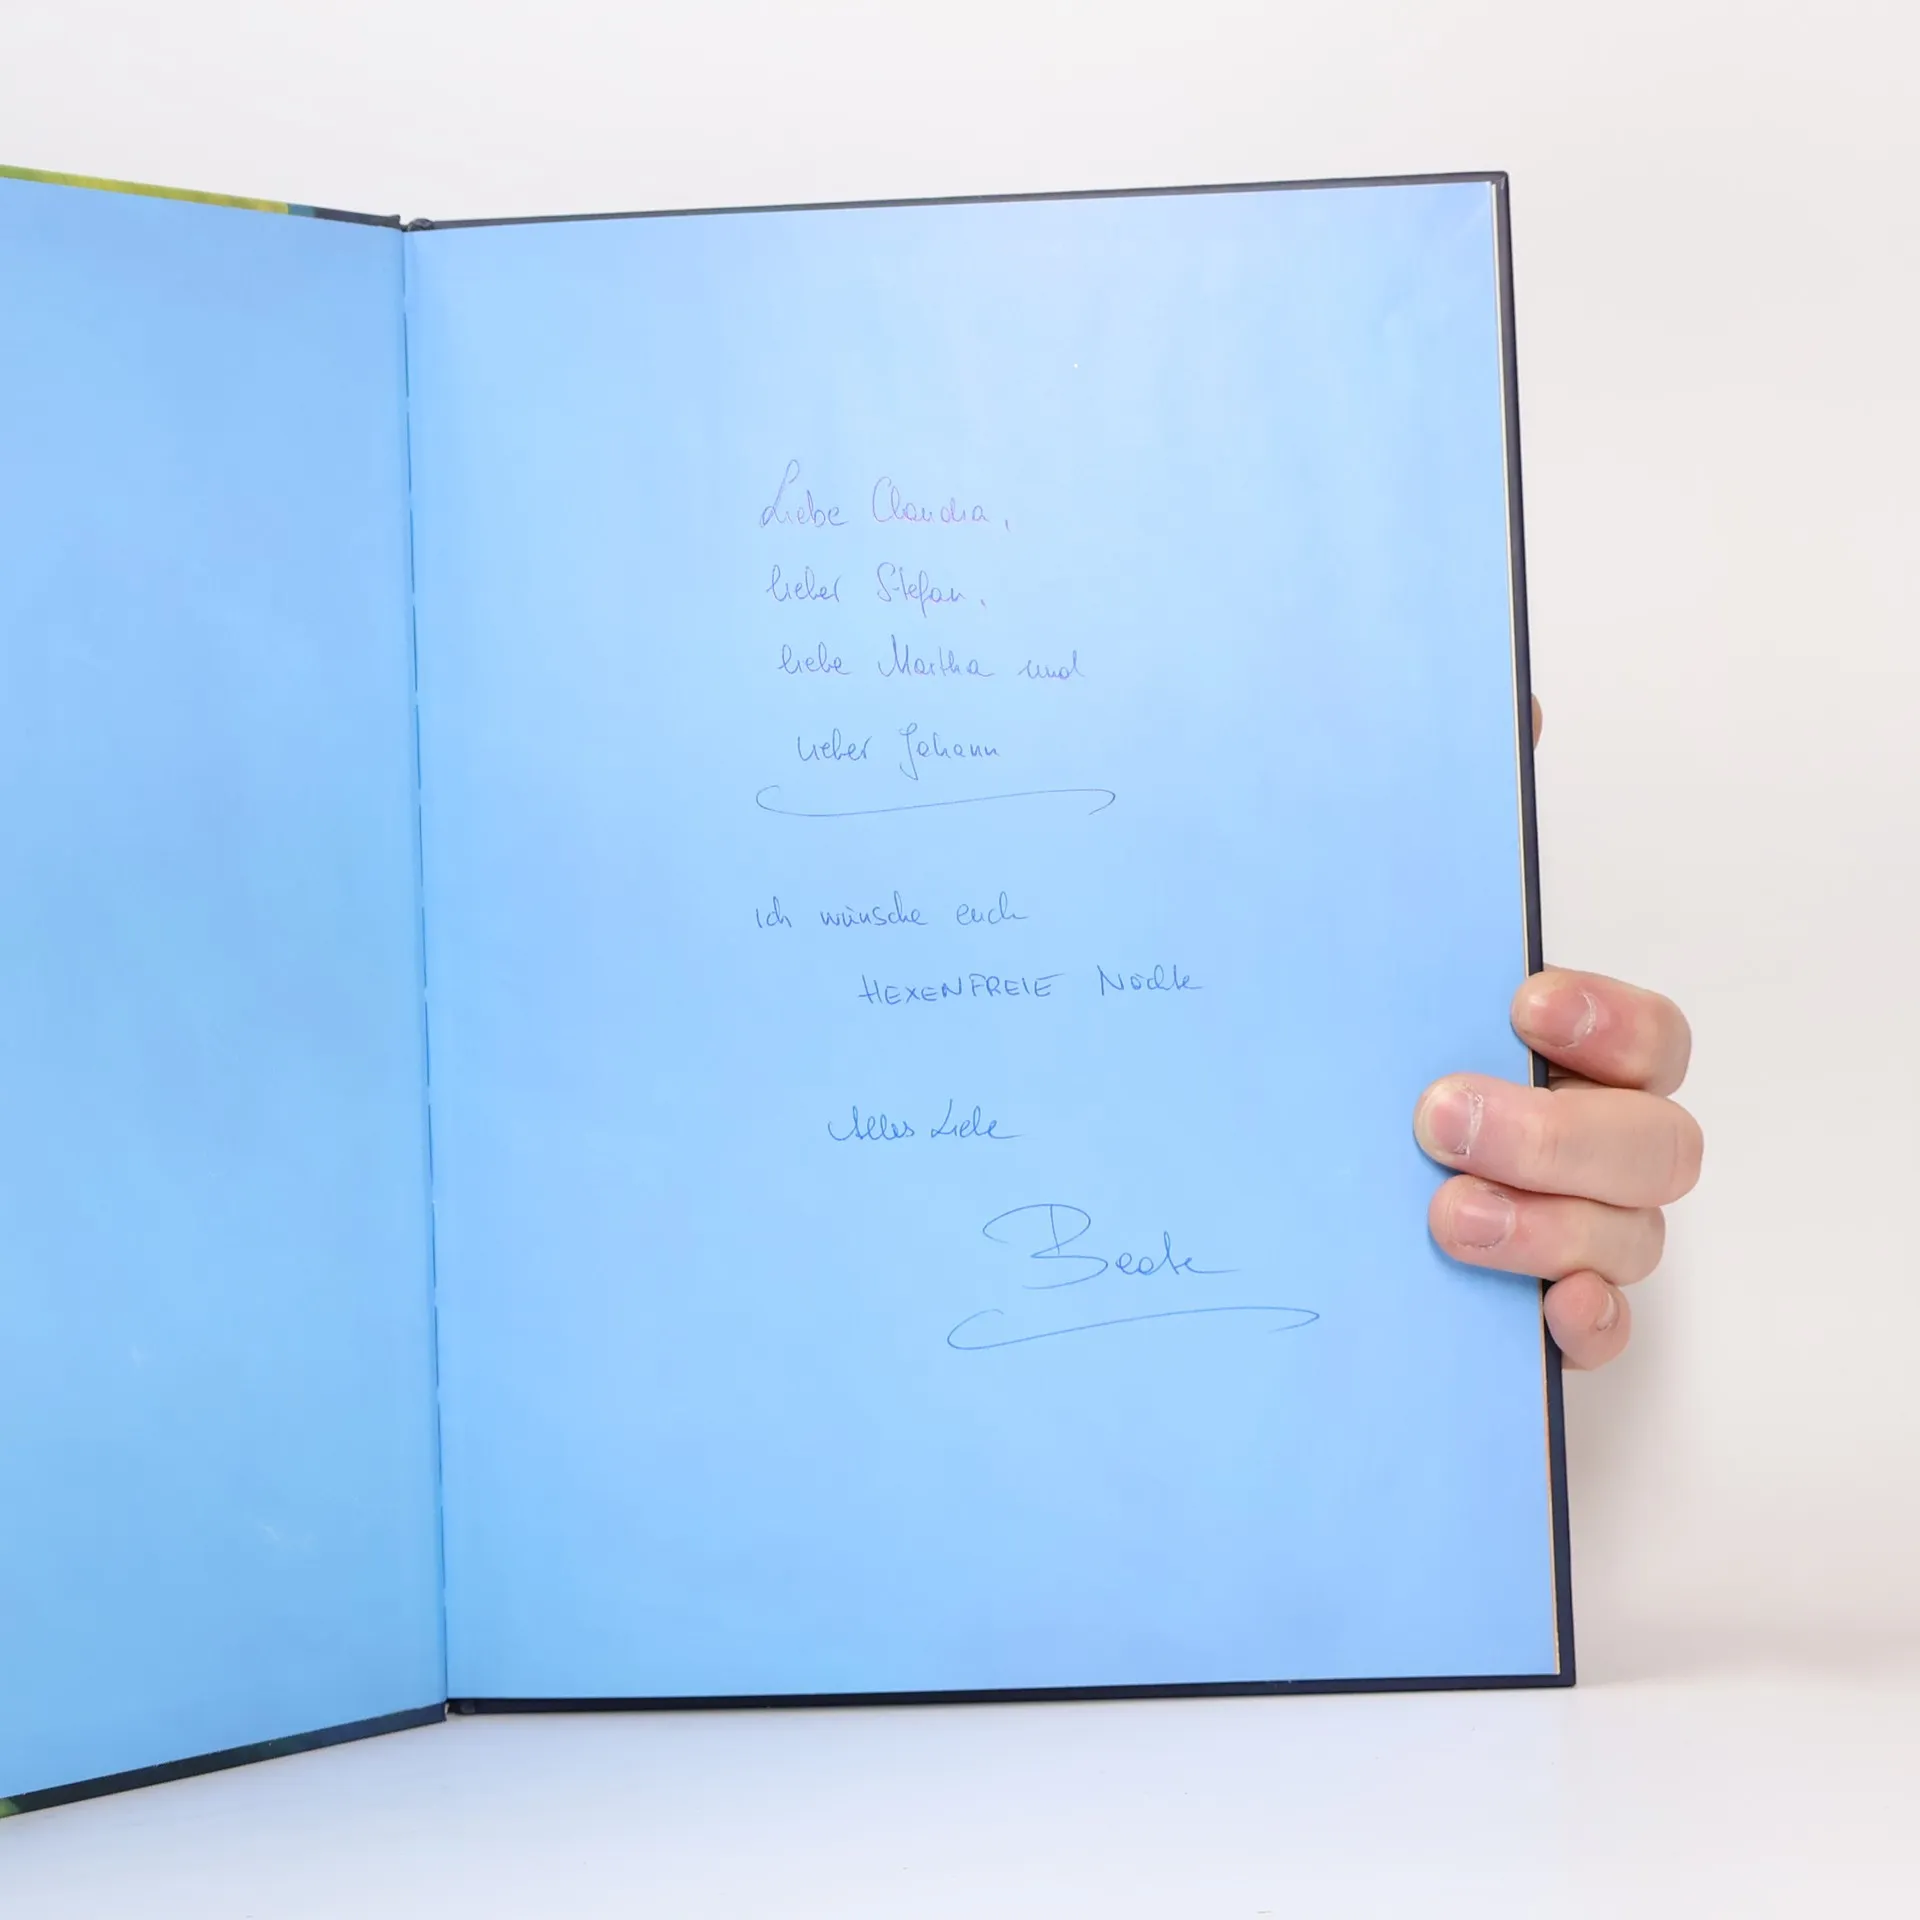 Liebe Claudia,
lieber Stefan,
liebe Martha und
lieber Johann
ich wünsche euch
HEXENFREIE Nächte
Alles Liebe
Beate